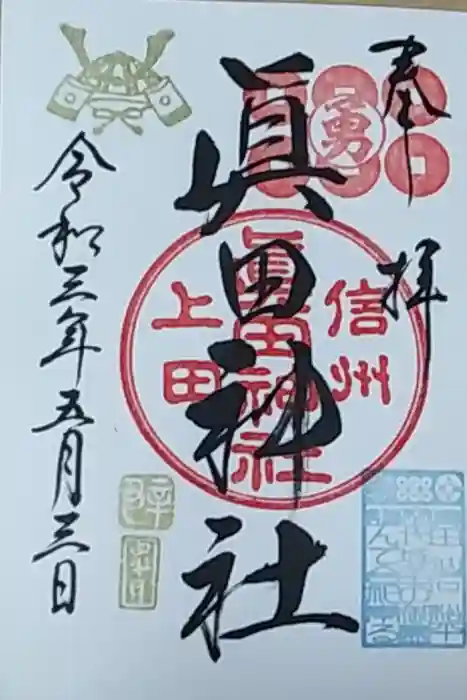 奉拝
勇
眞田神社
信州
眞田神社
上田
令和三年五月三日